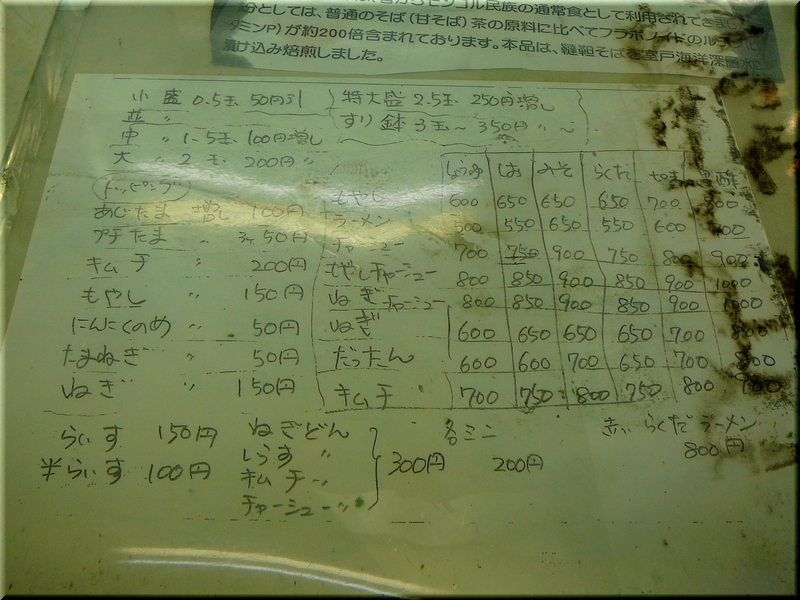 民族の通常食として利用されてきま
分としては、普通のそば(甘そば)茶の原料に比べてフラボノイドのル
タミンP)が約200倍含まれております。本品は、韃靼そばを室戸海洋深層水
漬け込み焙煎しました。
小盛 0.5玉 50円引
並 〃
中 〃 1.5玉 100円増し
大 〃 2玉 200円 〃
特大盛 2.5玉 250円増し
すり鉢 3玉~350円 〃 ~
トッピング
あじたま 増し 100円
プチたま 〃 3ケ 50円
キムチ 〃 200円
もやし 〃 150円
にんにくのめ 〃 50円
たまねぎ 〃 50円
ねぎ 〃 150円
しょうゆ しお みそ らくだ 黒酢
もやし 600 650 650 650 700
ラーメン 500 550 650 550 600
チャーシュー 700 750 900 750 800 900
もやしチャーシュー 800 850 900 850 900 1000
ねぎチャーシュー 800 850 900 850 900 1000
ねぎ 600 650 650 650 700 800
だったん 600 600 700 650 700 800
キムチ 〃 700 750 800 750 800
らいす 150円
半らいす 100円
ねぎどん
しらす 〃
キムチ 〃
チャーシュー 〃
300円
各ミニ
200円
赤いらくだラーメン
800円